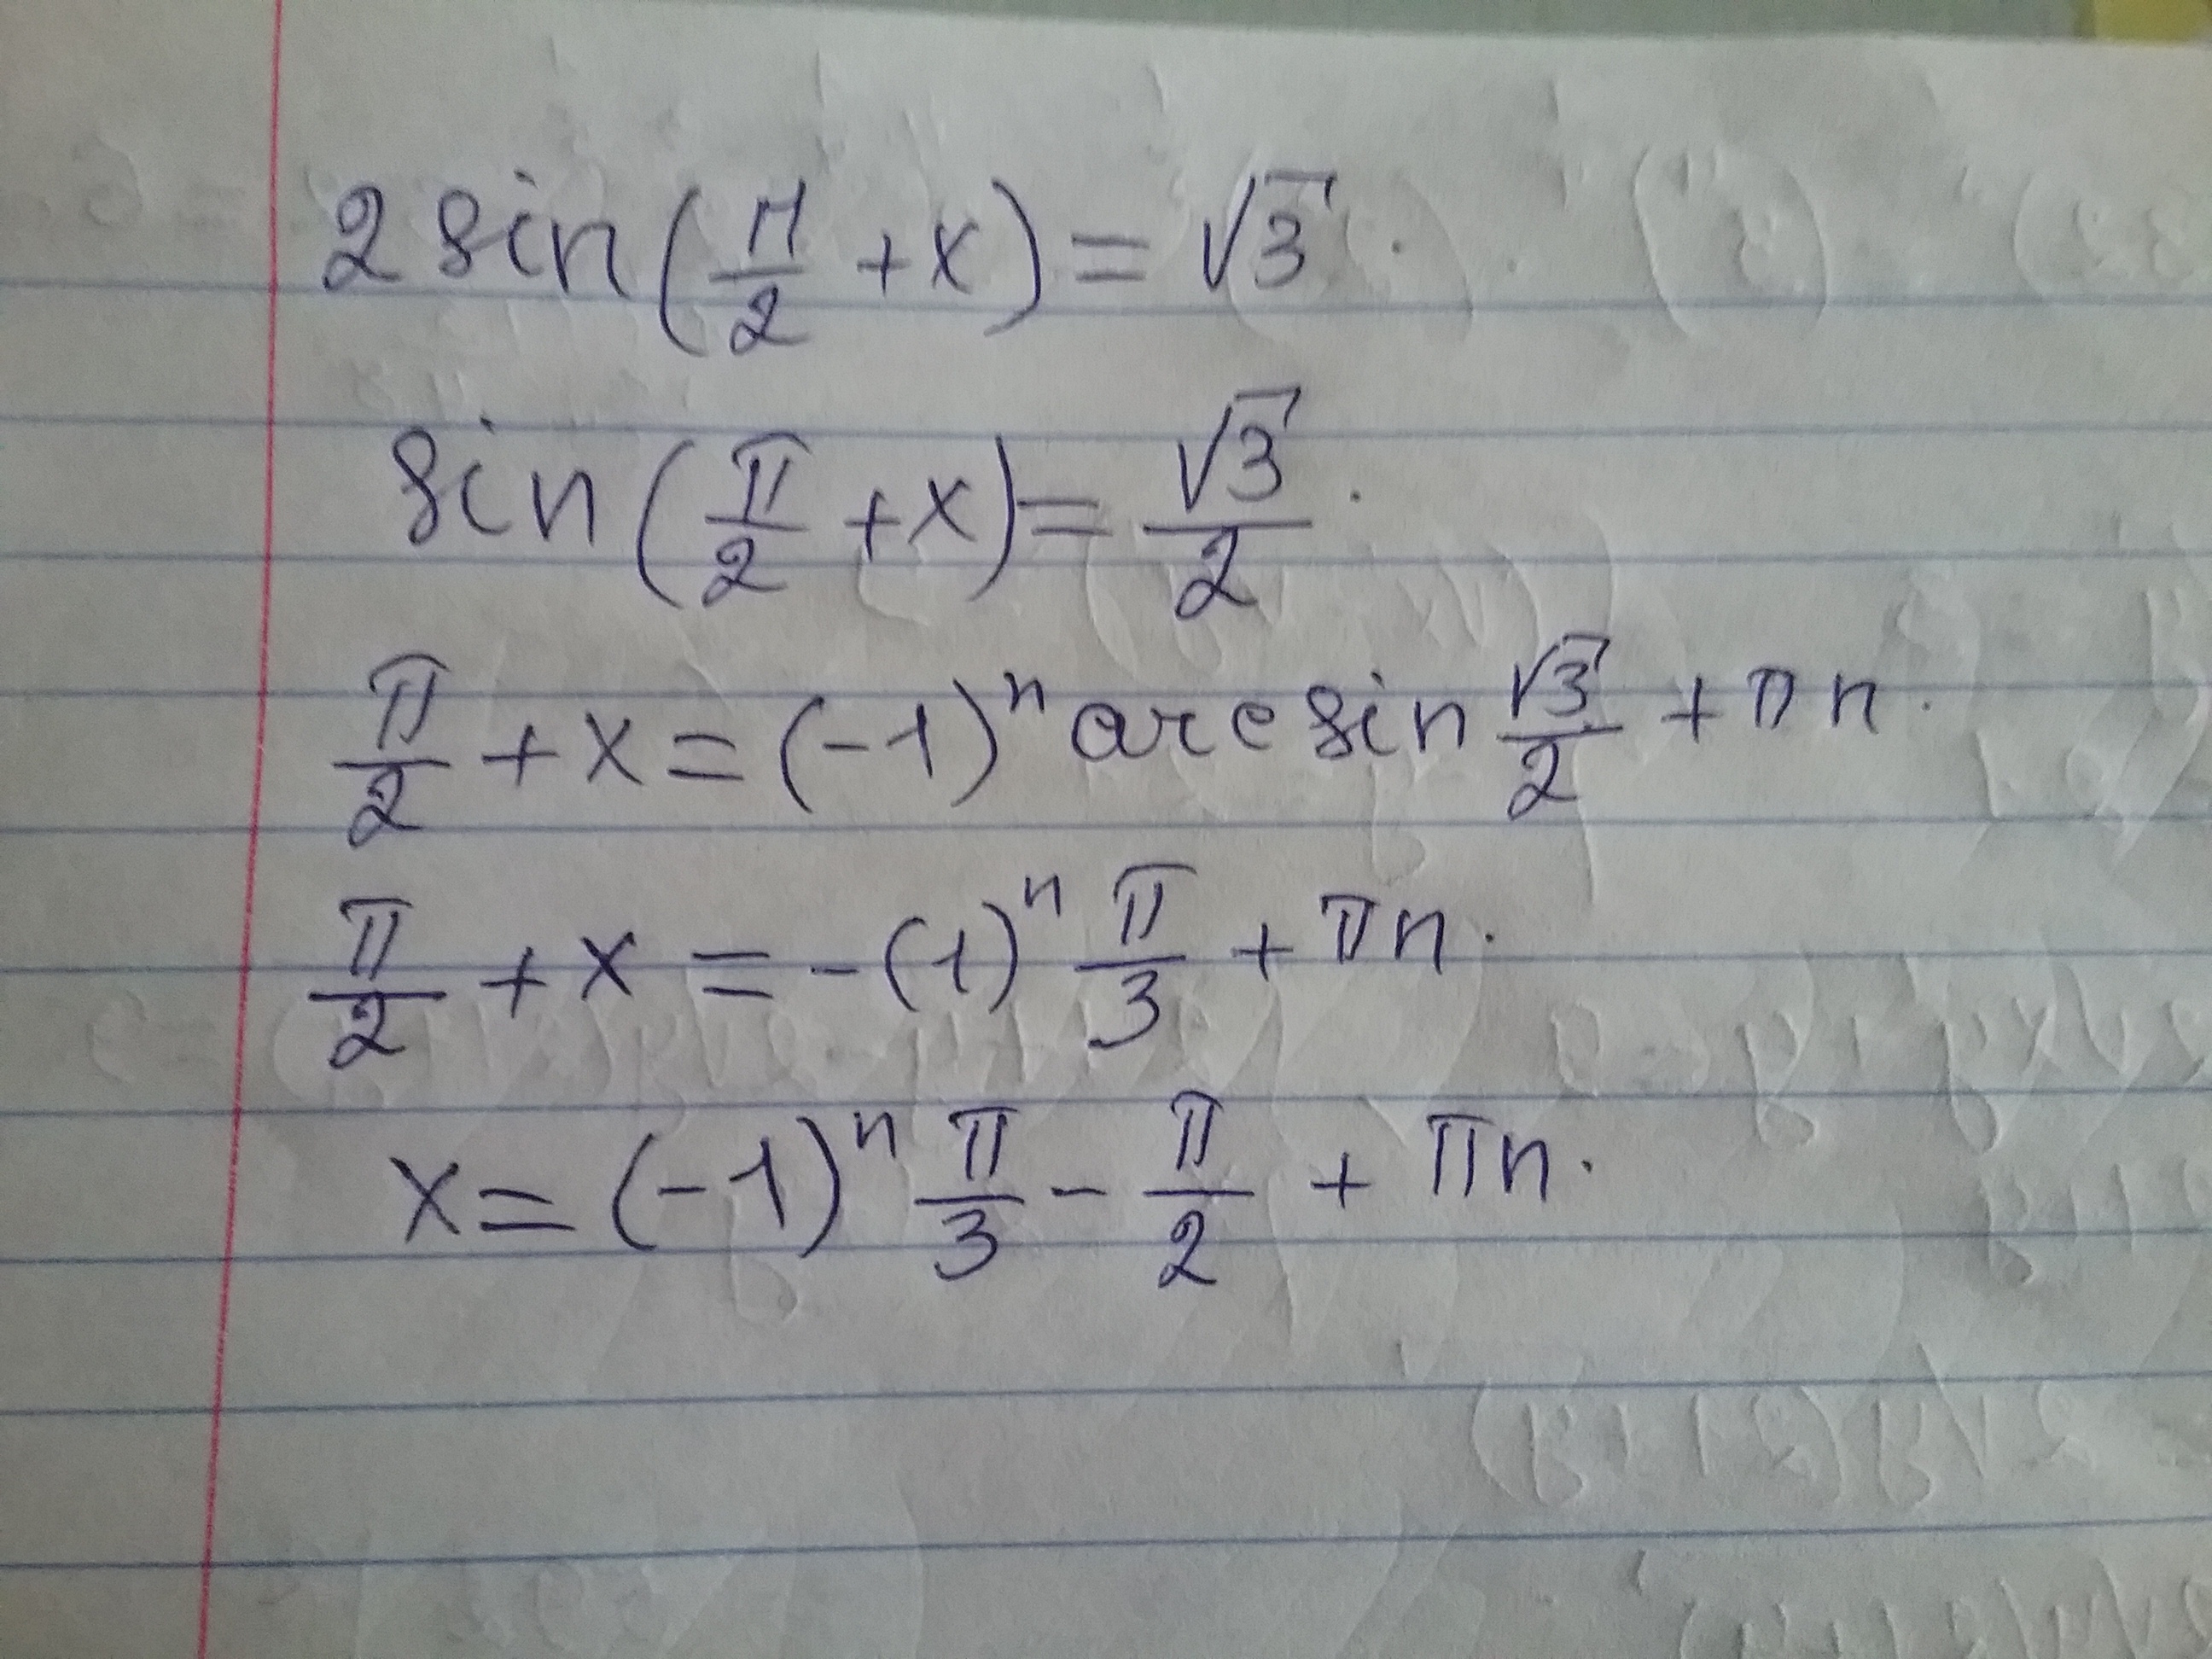 2 sin(π/2 + x) = √3.
sin(π/2 + x) = √3/2.
π/2 + x = (-1)ⁿ arcsin √3/2 + πn.
π/2 + x = -(1)ⁿ π/3 + πn.
x = (-1)ⁿ π/3 - π/2 + πn.